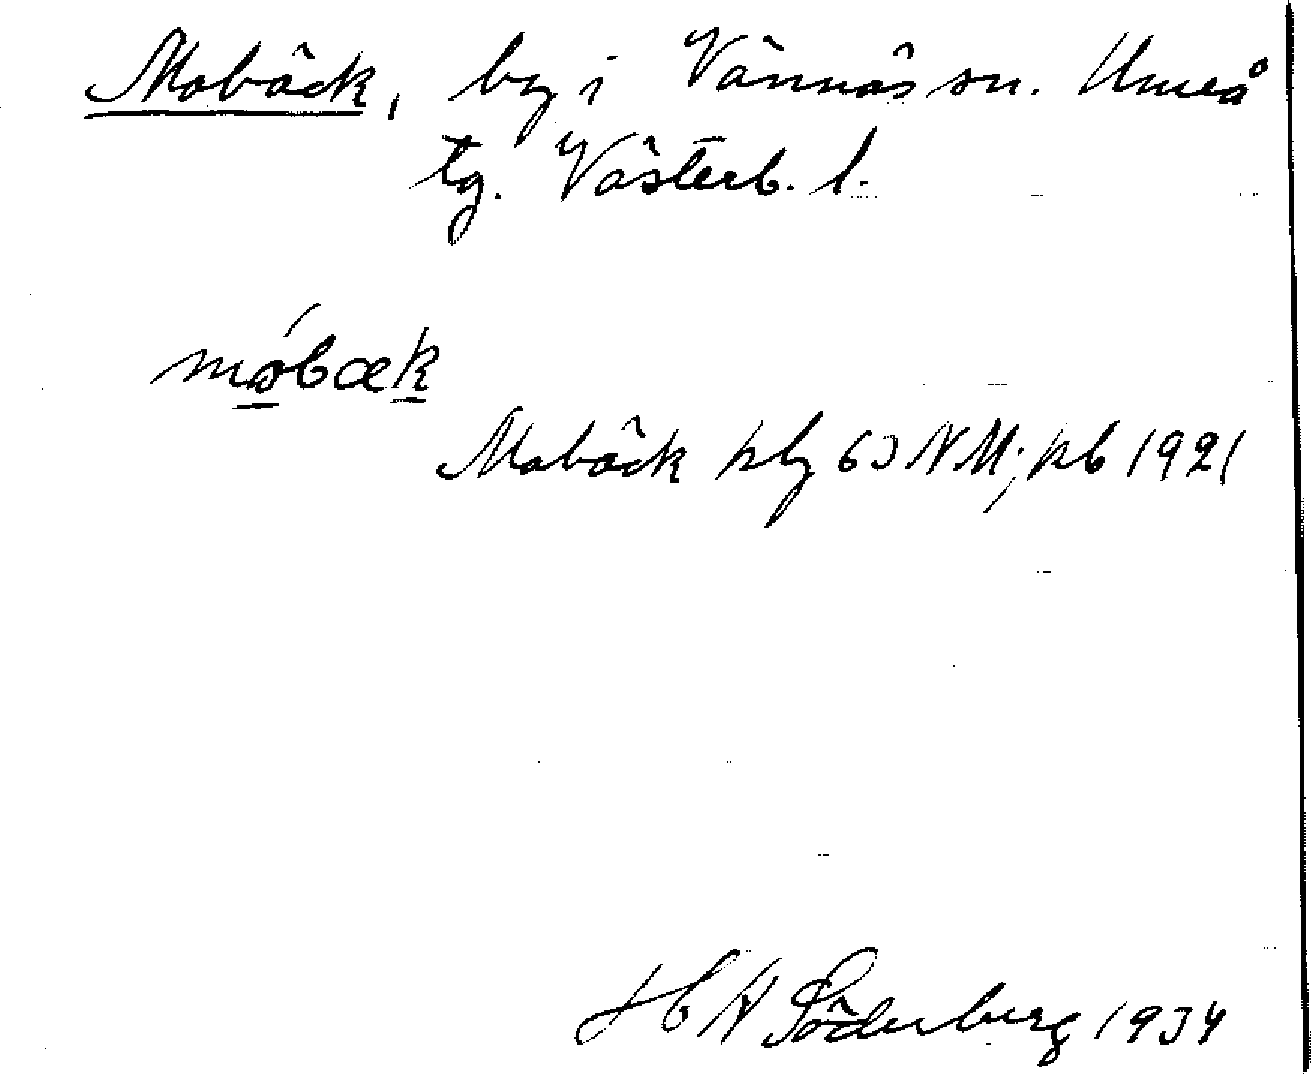 Mobäck, by i Vännäs sn. Umeå
tg. Västerb. l.
mó̱bæḵ
Mobäck kby 63 NM; kb 1921
H W Söderberg 1934